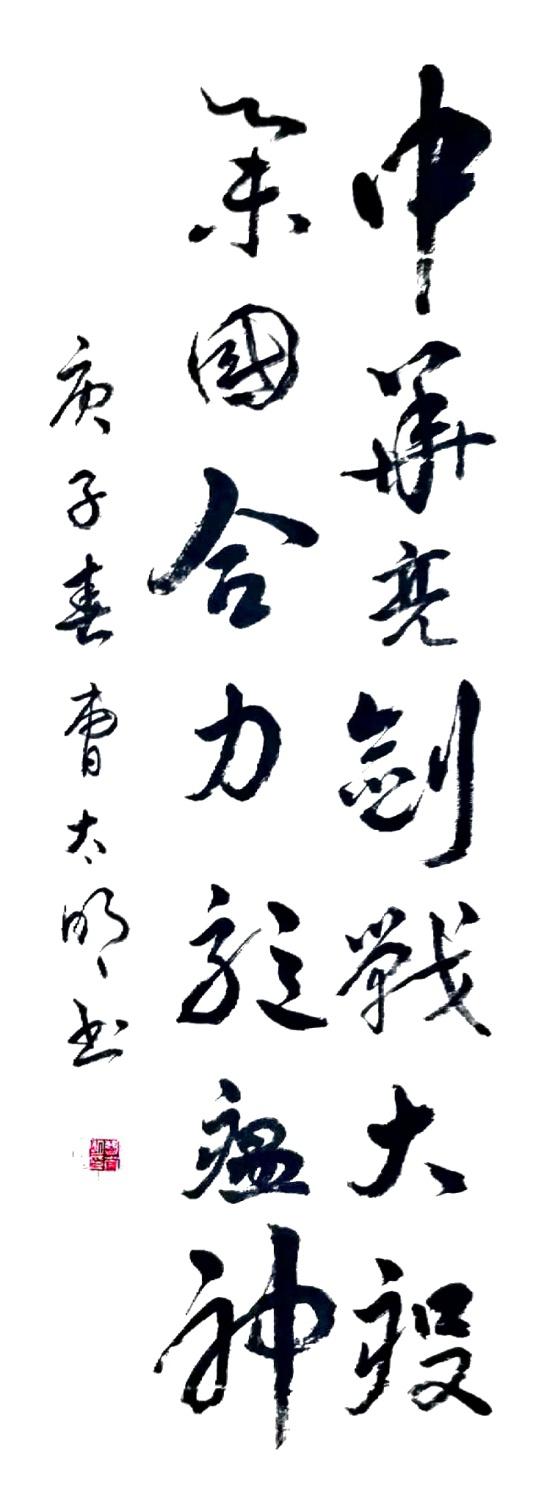 中華亮劍戰大疫
舉國合力驅瘟神
庚子春曹太明书